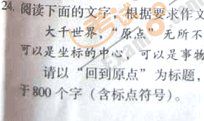 24. 阅读下面的文字，根据要求作文
大千世界，“原点”无所不
可以是坐标的中心，可以是事物
请以“回到原点”为标题，
于800个字（含标点符号）。